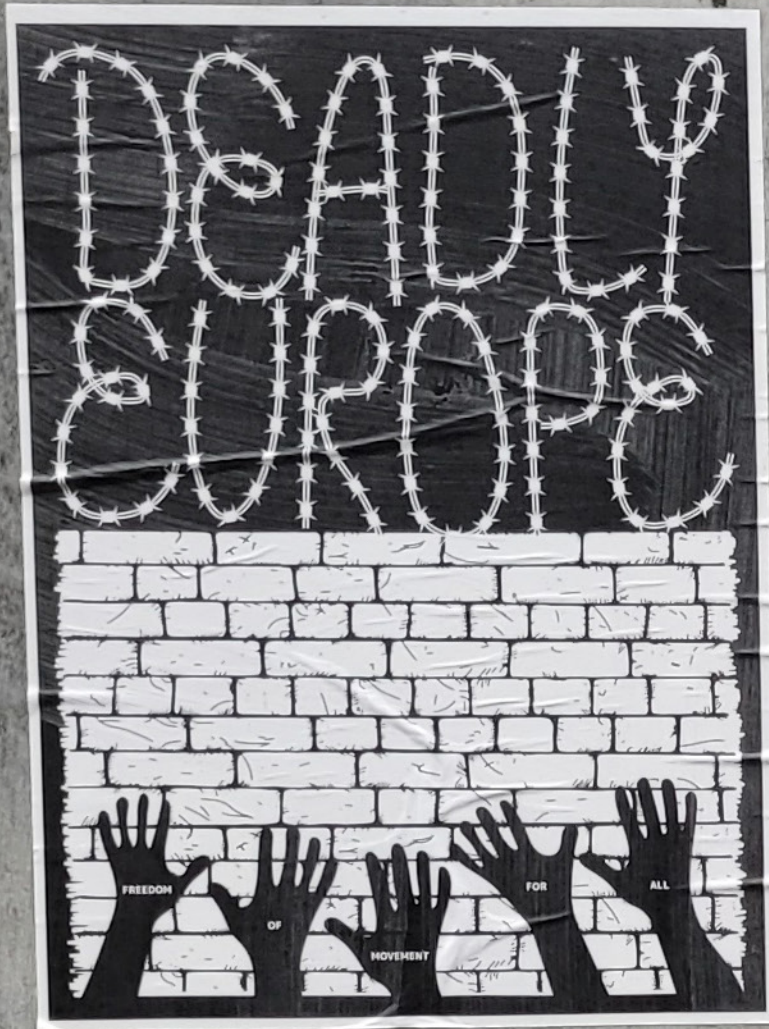 DEADLY
EUROPE
FREEDOM
OF
MOVEMENT
FOR
ALL